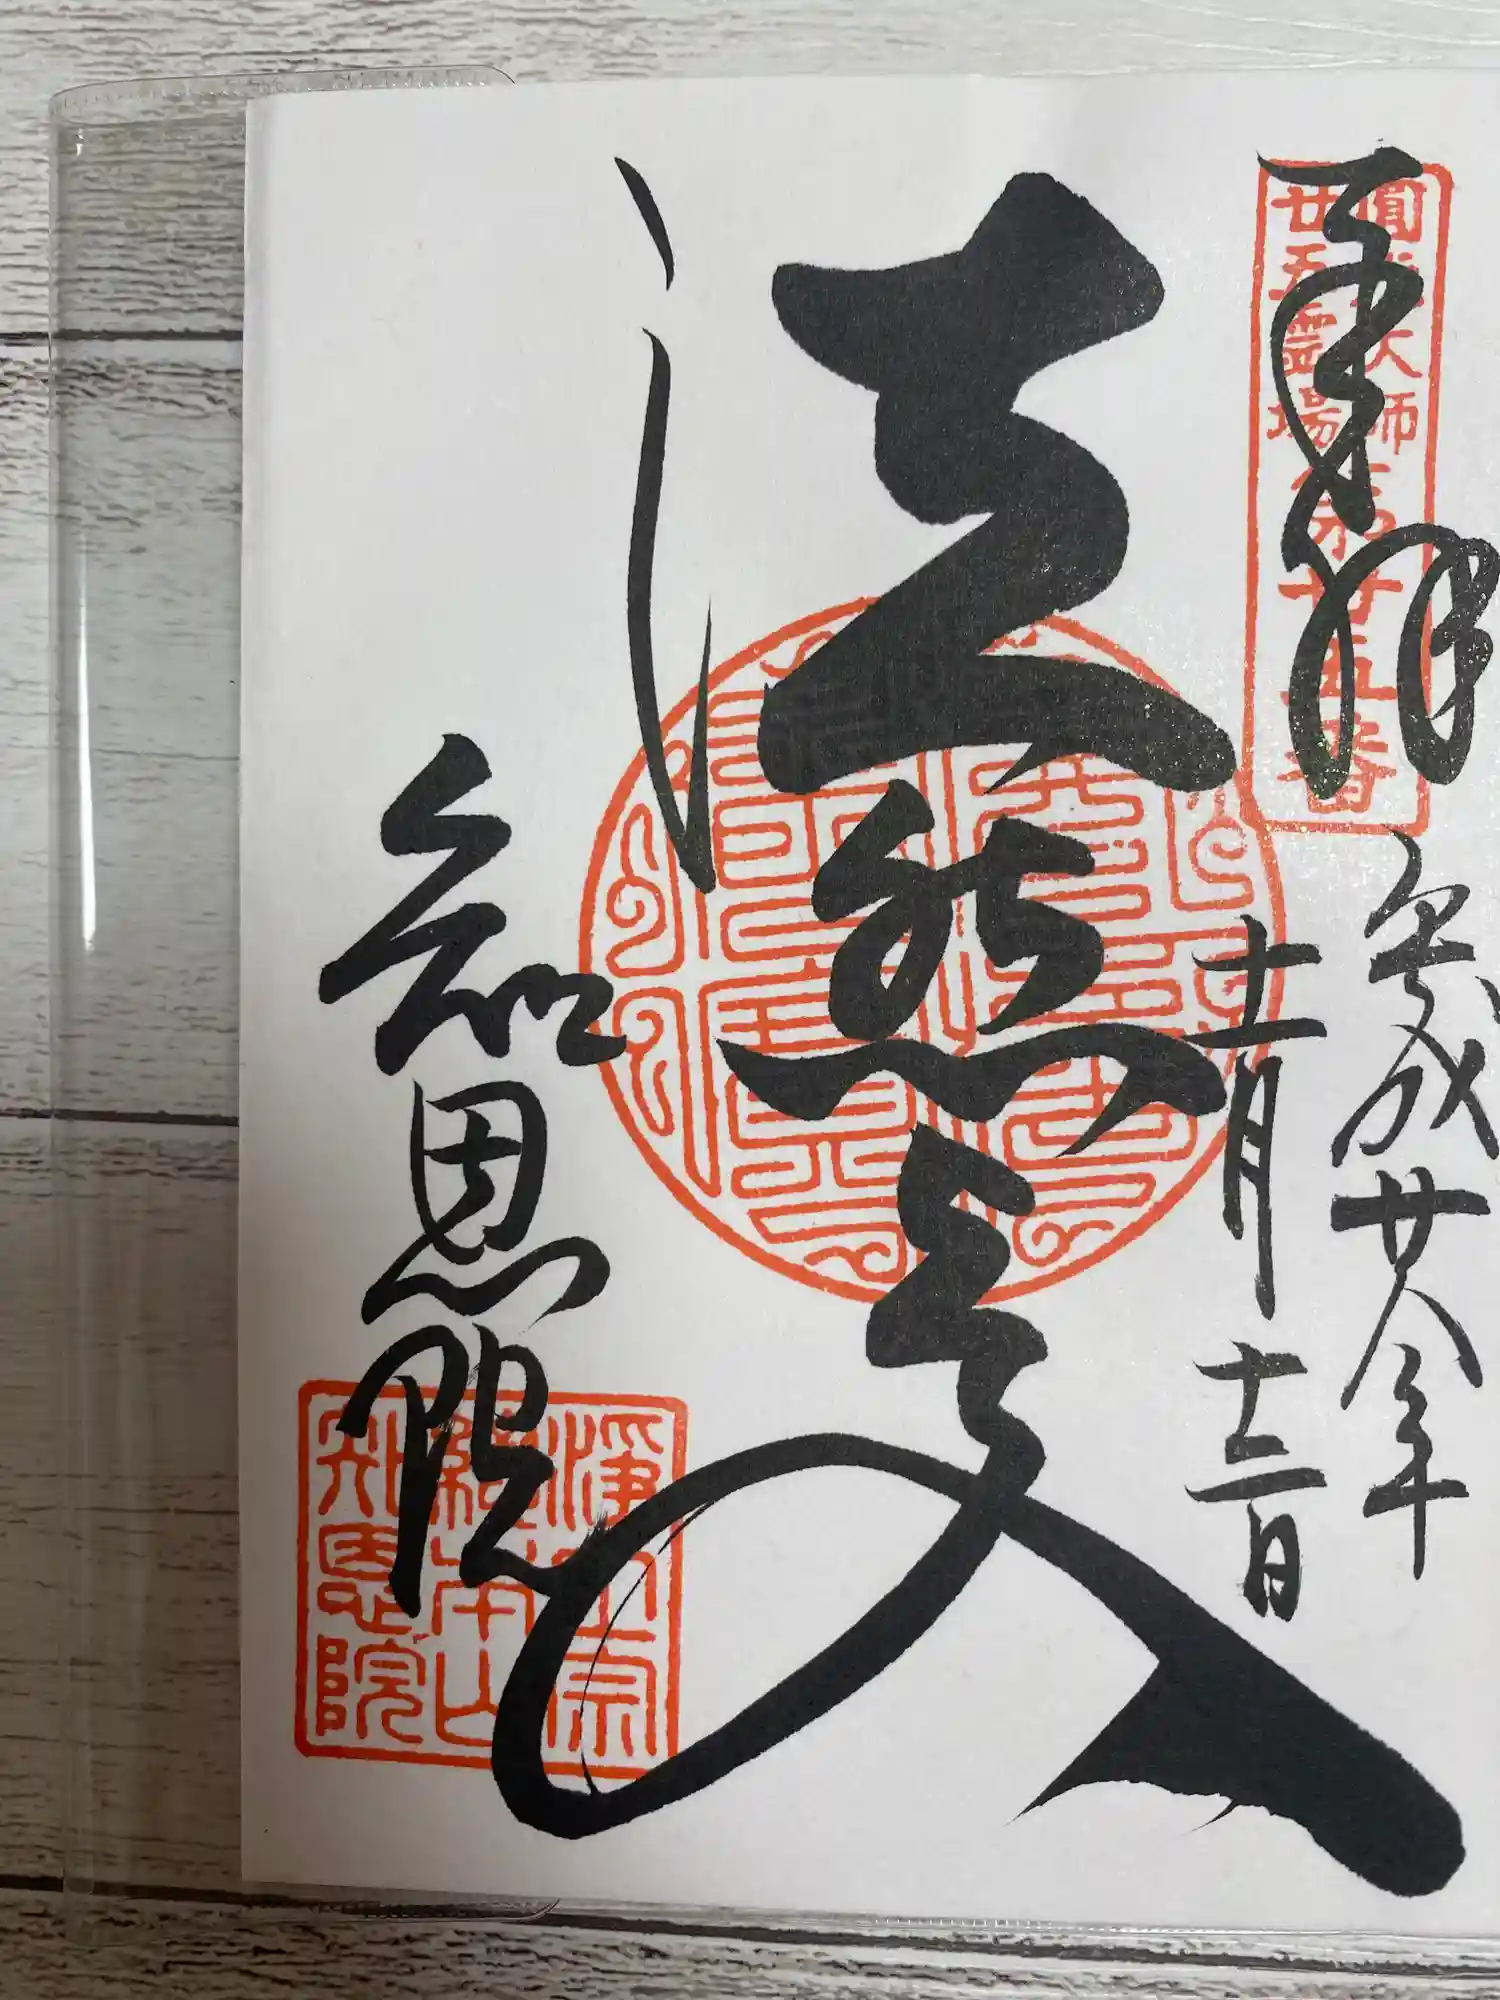 圓光大師
廿五霊場
第廿五番
奉拝
平成廿八年
十一月十二日
法然上人
知恩院
淨土宗
總本山
知恩院